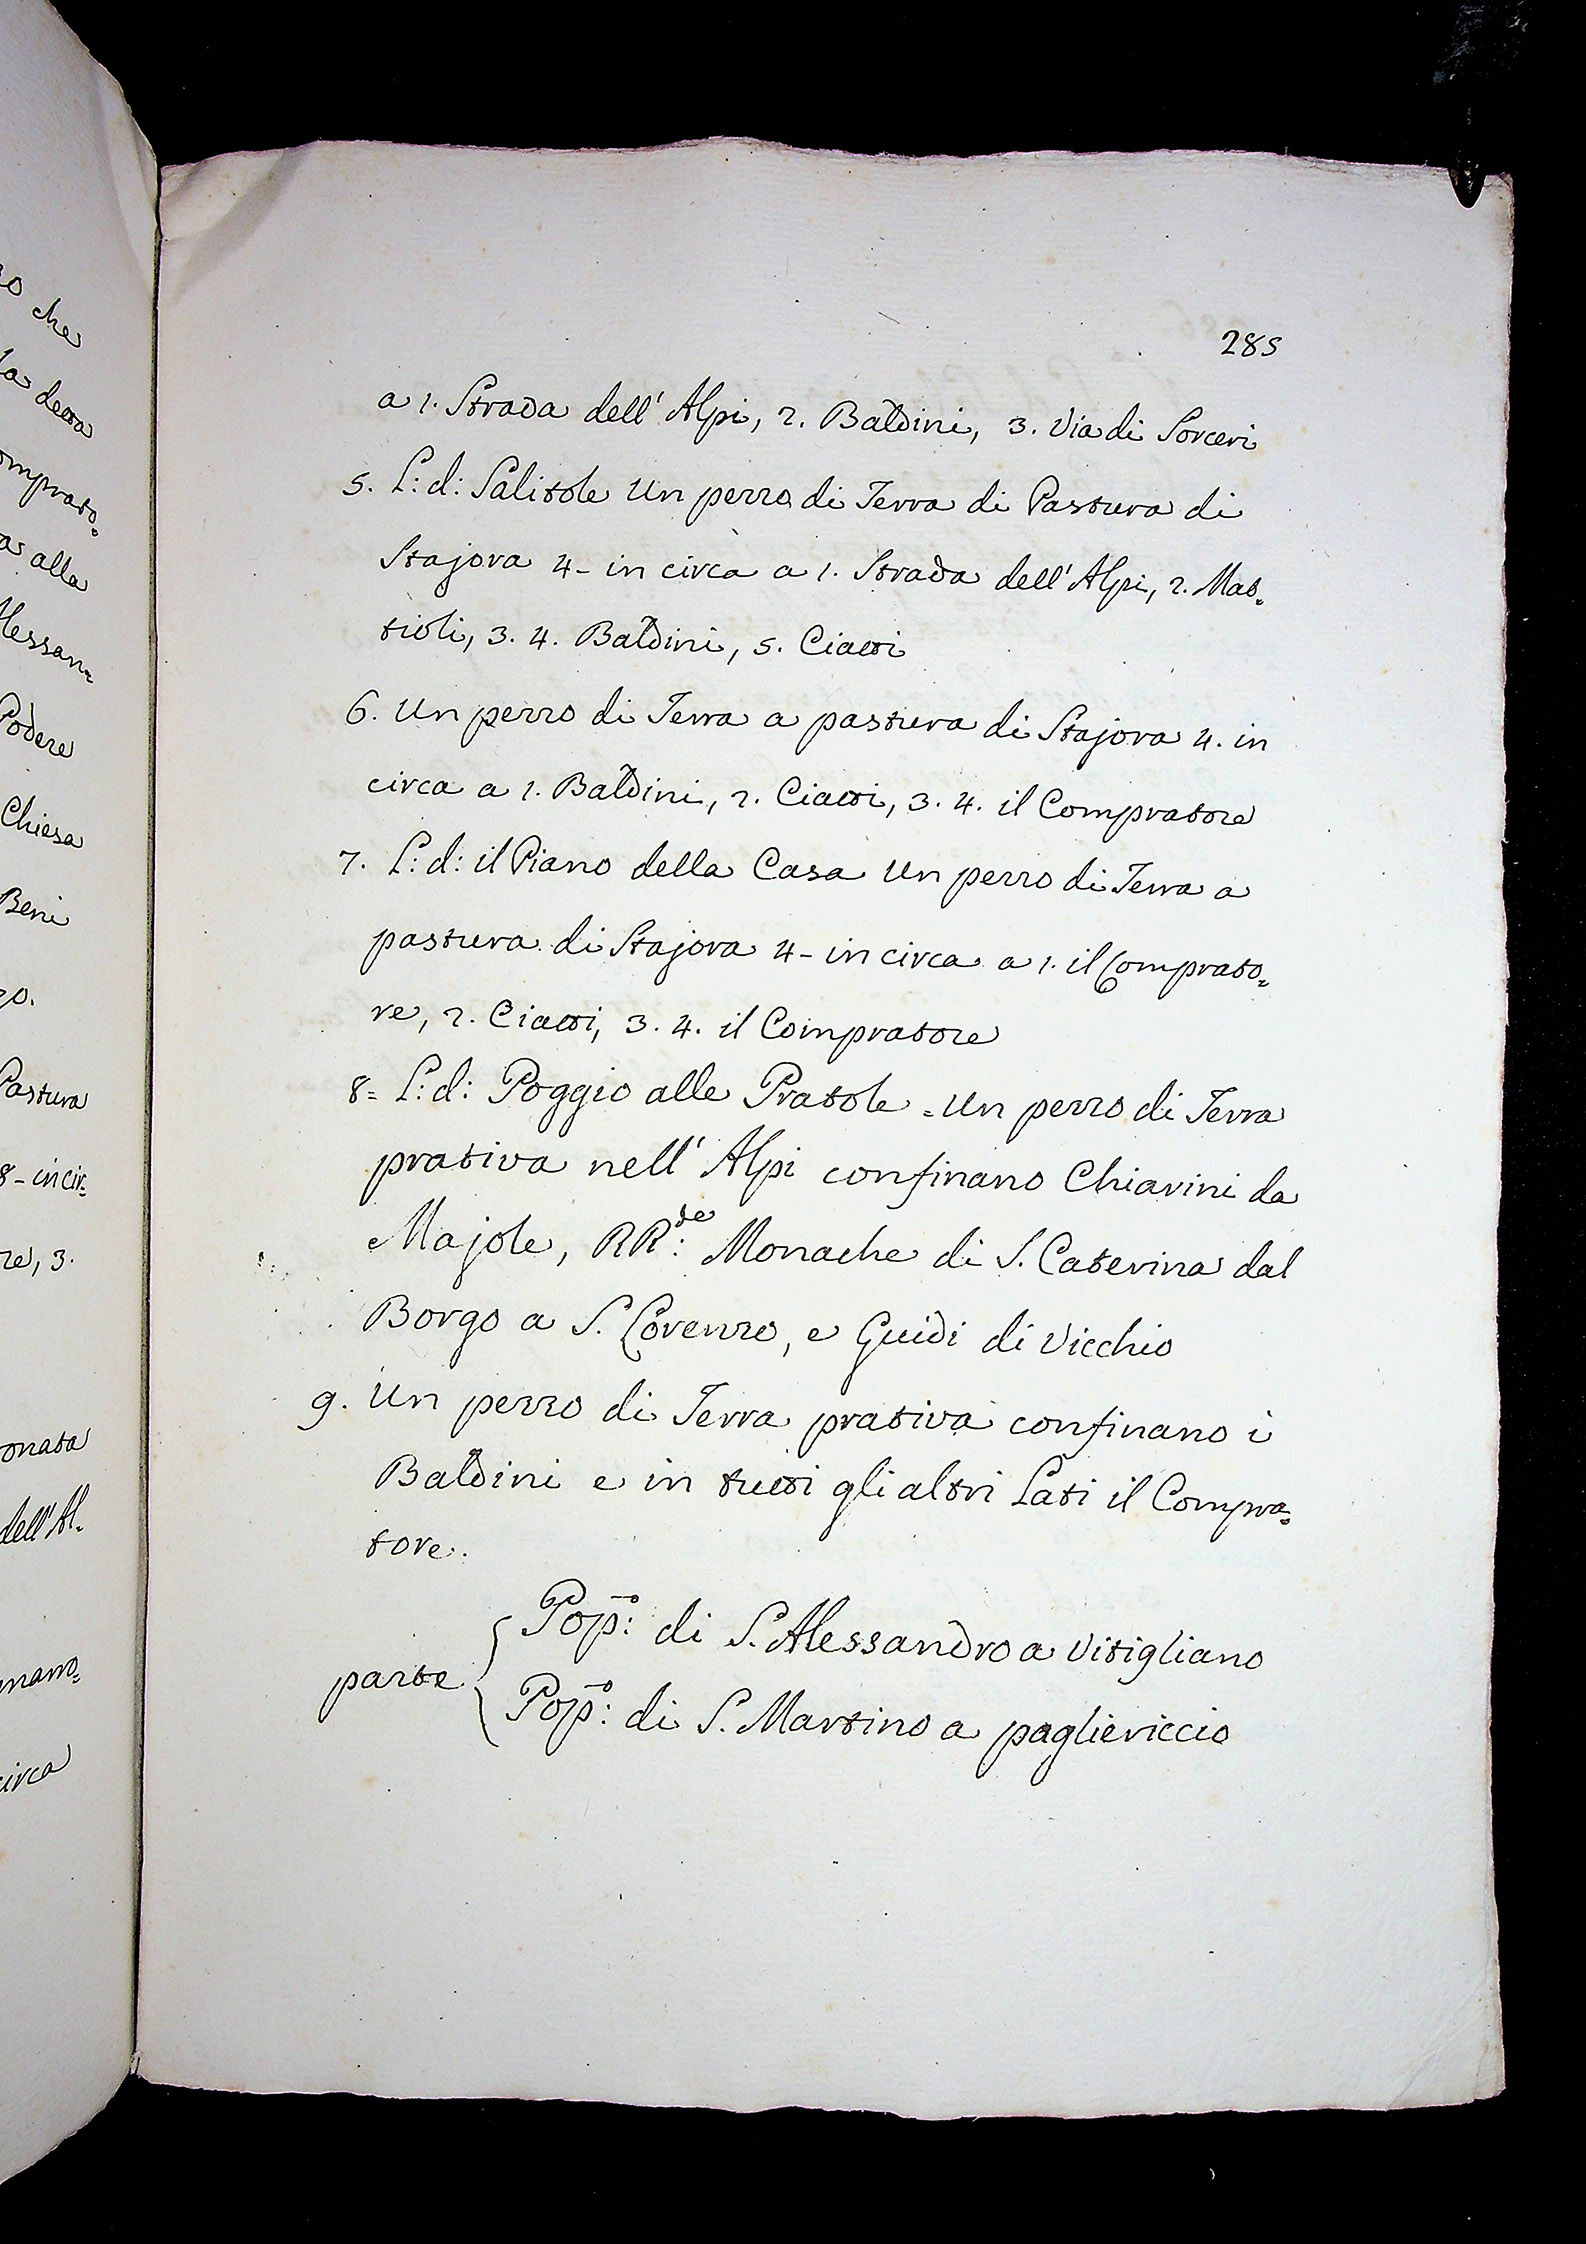 zo che
la detta
omprato=
a alla
Alessan=
Podere
Chiesa
Beni
zo.
Pastura
8 - in cir=
re, 3.
onata
dell'Al=
circa
285
a 1. Strada dell'Alpi, 2. Baldini, 3. Via di Sorceri
5. L: d: Salitole Un pezzo di Terra di Pastura di
Stajora 4 - in circa a 1. Strada dell'Alpi, 2. Mat=
tioli, 3. 4. Baldini, 5. Ciatti
6. Un pezzo di Terra a pastura di Stajora 4. in
circa a 1. Baldini, 2. Ciatti, 3. 4. il Compratore
7. L: d: il Piano della Casa Un pezzo di Terra a
pastura di Stajora 4 - in circa a 1. il Comprato=
re, 2. Ciatti, 3. 4. il Compratore
8 = L: d: Poggio alle Pratole = Un pezzo di Terra
prativa nell'Alpi confinano Chiarini da
Majole, RR:de Monache di S. Caterina dal
Borgo a S. Lorenzo, e Guidi di Vicchio
9. Un pezzo di Terra prativa confinano i
Baldini e in tutti gli altri Lati il Compra=
tore.
parte { Pop:o di S. Alessandro a Vitigliano
Pop:o di S. Martino a pagliericcio